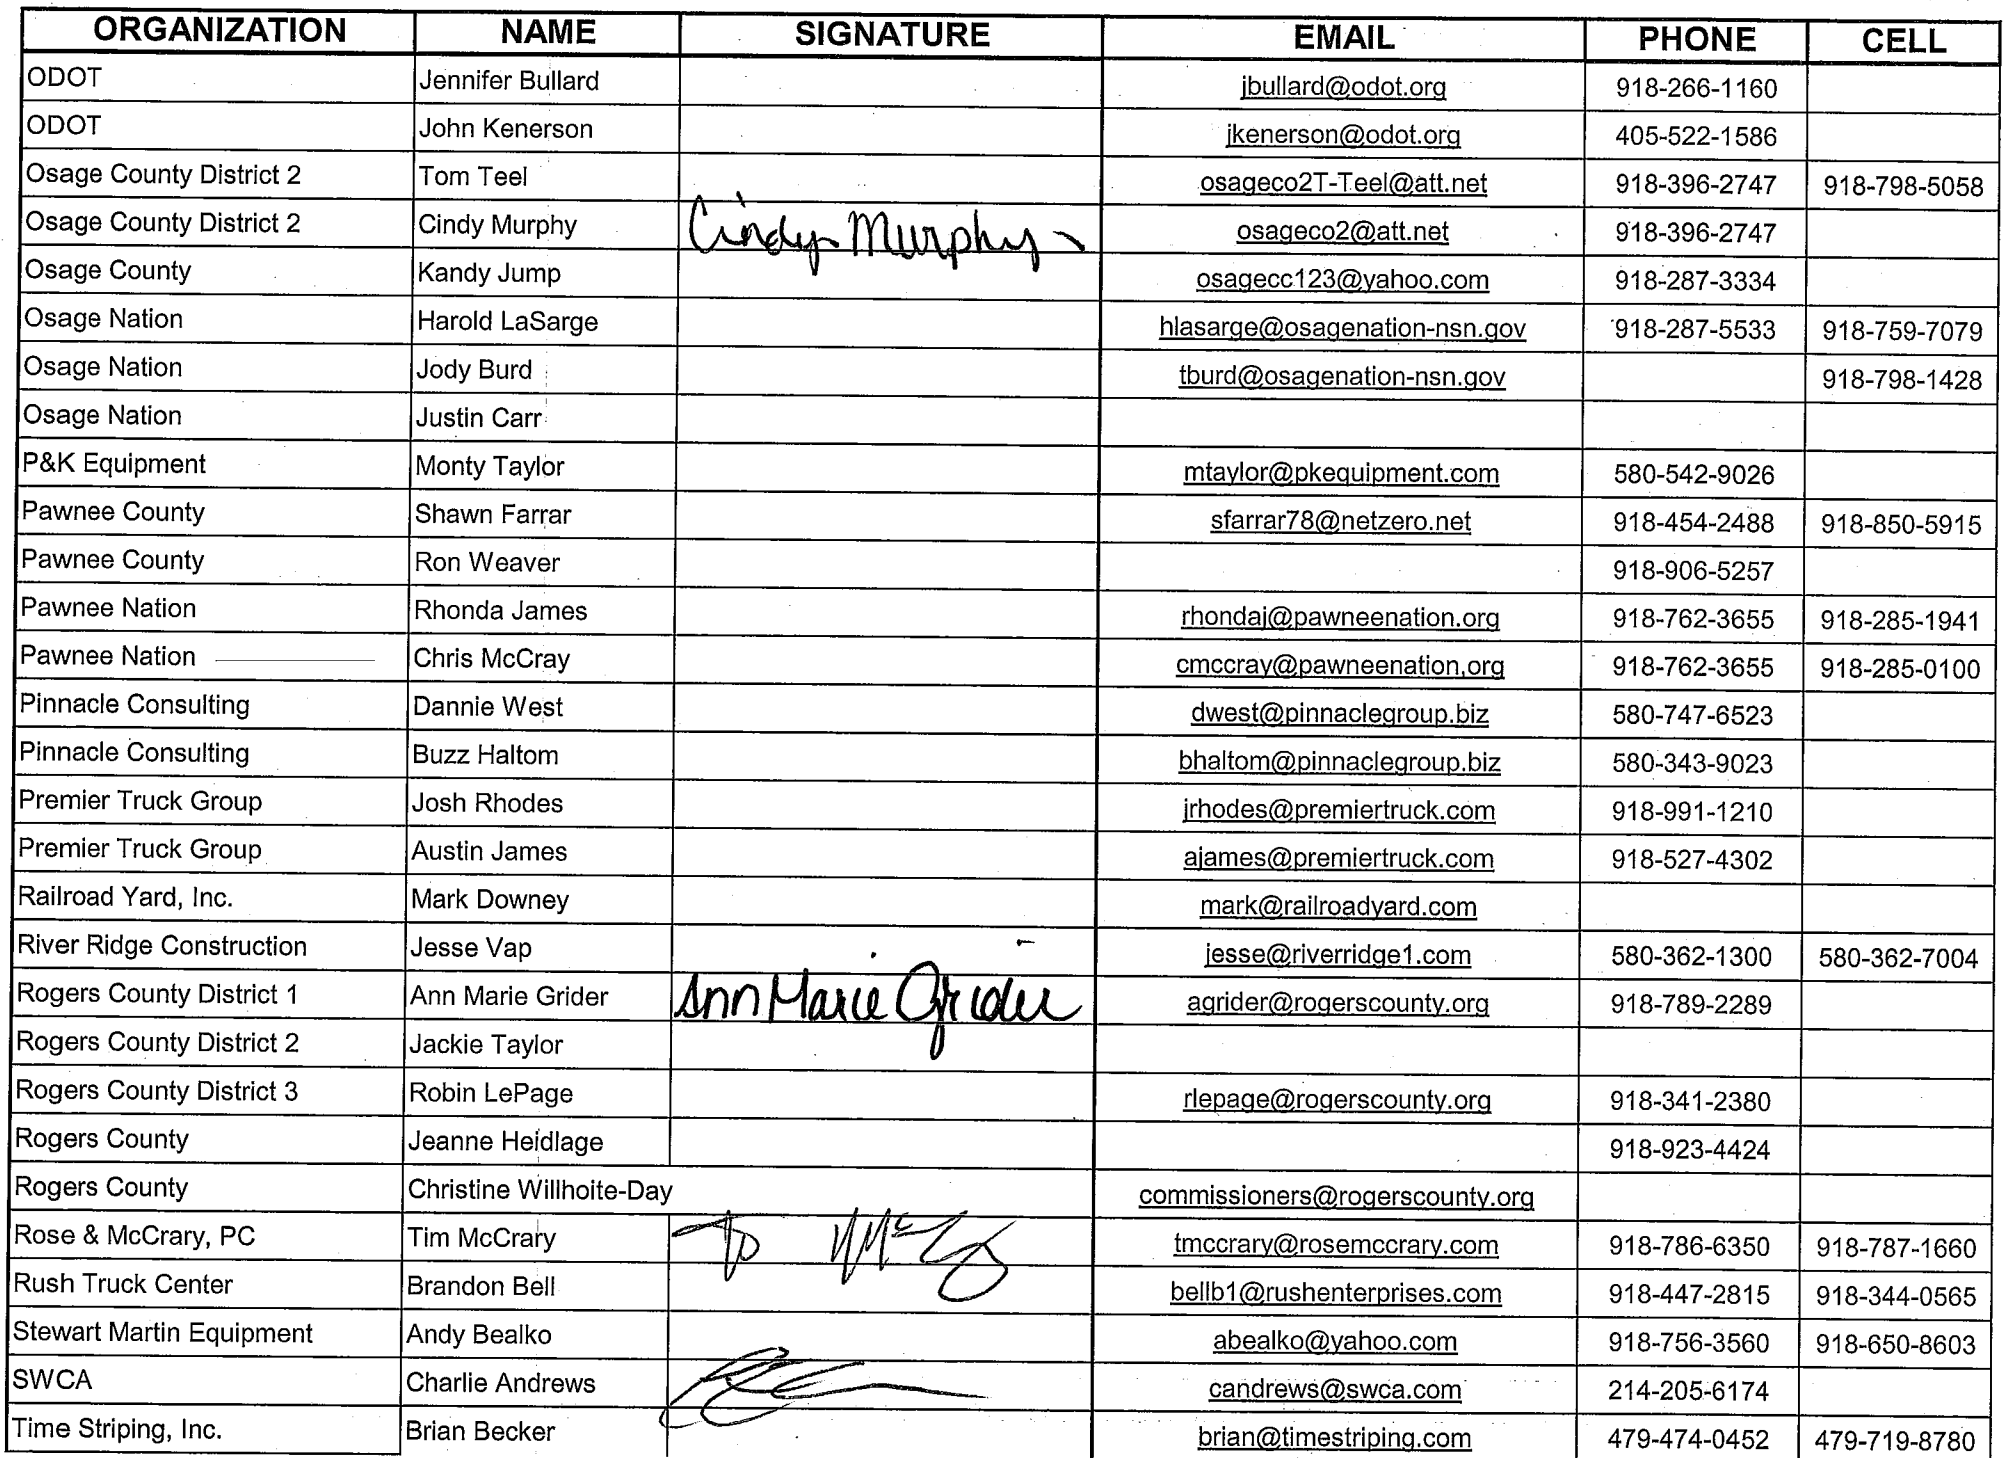 ORGANIZATION NAME SIGNATURE EMAIL PHONE CELL
ODOT Jennifer Bullard jbullard@odot.org 918-266-1160
ODOT John Kenerson jkenerson@odot.org 405-522-1586
Osage County District 2 Tom Teel osageco2T-Teel@att.net 918-396-2747 918-798-5058
Osage County District 2 Cindy Murphy Cindy Murphy osageco2@att.net 918-396-2747
Osage County Kandy Jump osagecc123@yahoo.com 918-287-3334
Osage Nation Harold LaSarge hlasarge@osagenation-nsn.gov 918-287-5533 918-759-7079
Osage Nation Jody Burd tburd@osagenation-nsn.gov 918-798-1428
Osage Nation Justin Carr
P&K Equipment Monty Taylor mtaylor@pkequipment.com 580-542-9026
Pawnee County Shawn Farrar sfarrar78@netzero.net 918-454-2488 918-850-5915
Pawnee County Ron Weaver 918-906-5257
Pawnee Nation Rhonda James rhondaj@pawneenation.org 918-762-3655 918-285-1941
Pawnee Nation Chris McCray cmccray@pawneenation,org 918-762-3655 918-285-0100
Pinnacle Consulting Dannie West dwest@pinnaclegroup.biz 580-747-6523
Pinnacle Consulting Buzz Haltom bhaltom@pinnaclegroup.biz 580-343-9023
Premier Truck Group Josh Rhodes jrhodes@premiertruck.com 918-991-1210
Premier Truck Group Austin James ajames@premiertruck.com 918-527-4302
Railroad Yard, Inc. Mark Downey mark@railroadyard.com
River Ridge Construction Jesse Vap jesse@riverridge1.com 580-362-1300 580-362-7004
Rogers County District 1 Ann Marie Grider Ann Marie Grider agrider@rogerscounty.org 918-789-2289
Rogers County District 2 Jackie Taylor
Rogers County District 3 Robin LePage rlepage@rogerscounty.org 918-341-2380
Rogers County Jeanne Heidlage 918-923-4424
Rogers County Christine Willhoite-Day commissioners@rogerscounty.org
Rose & McCrary, PC Tim McCrary tmccrary@rosemccrary.com 918-786-6350 918-787-1660
Rush Truck Center Brandon Bell bellb1@rushenterprises.com 918-447-2815 918-344-0565
Stewart Martin Equipment Andy Bealko abealko@yahoo.com 918-756-3560 918-650-8603
SWCA Charlie Andrews candrews@swca.com 214-205-6174
Time Striping, Inc. Brian Becker brian@timestriping.com 479-474-0452 479-719-8780